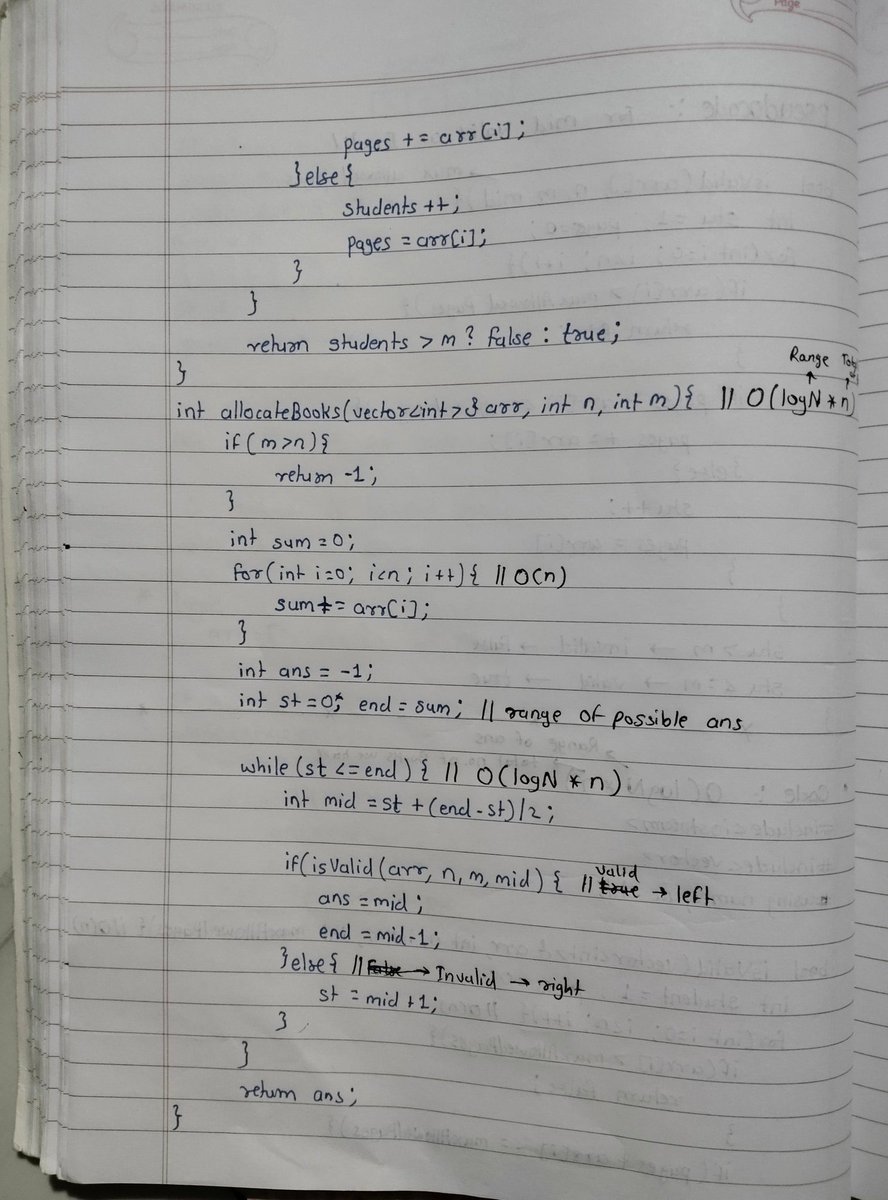 Page
pages += arr[i];
}else{
students++;
pages = arr[i];
}
}
return students > m ? false : true;
}
Range
int allocateBooks(vector<int>& arr, int n, int m){ // O(logN * n)
if(m>n){
return -1;
}
int sum=0;
for(int i=0; i<n; i++){ // O(n)
sum += arr[i];
}
int ans = -1;
int st=0, end = sum; // range of possible ans
while(st <= end){ // O(logN * n)
int mid = st + (end-st)/2;
if(isValid(arr, n, m, mid){ // valid → left
ans = mid;
end = mid-1;
}else{ // → Invalid → right
st = mid+1;
}
}
return ans;
}